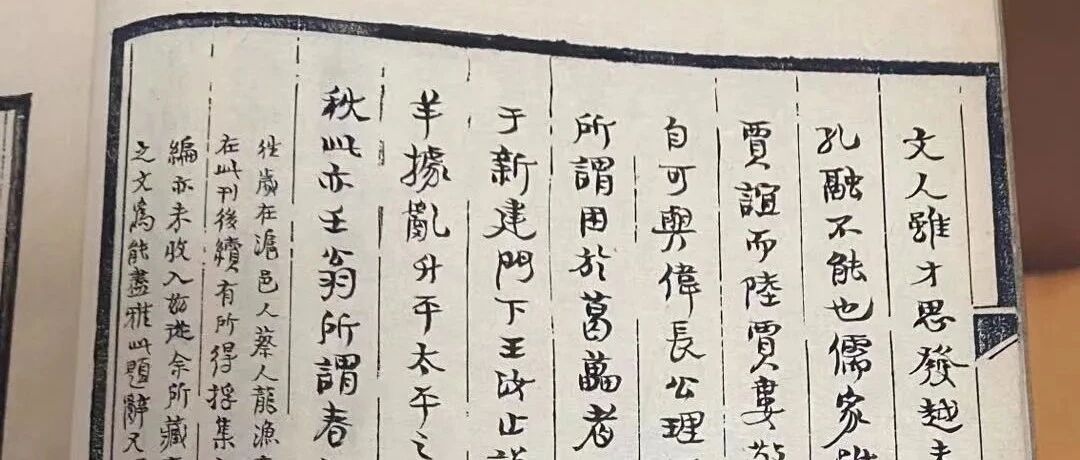 文人雖才思發越
孔融不能也儒家
賈誼而陸賈婁敬
自可與偉長公理
所謂用於葛藟者
于新建門下王汝止
羊據亂升平太平之
秋此亦壬翁所謂春
往歲在滬邑人蔡人龍漁
在此刊後續有所得捊集
編亦未收入茲從余所藏
之文爲能盡雅此題辭又